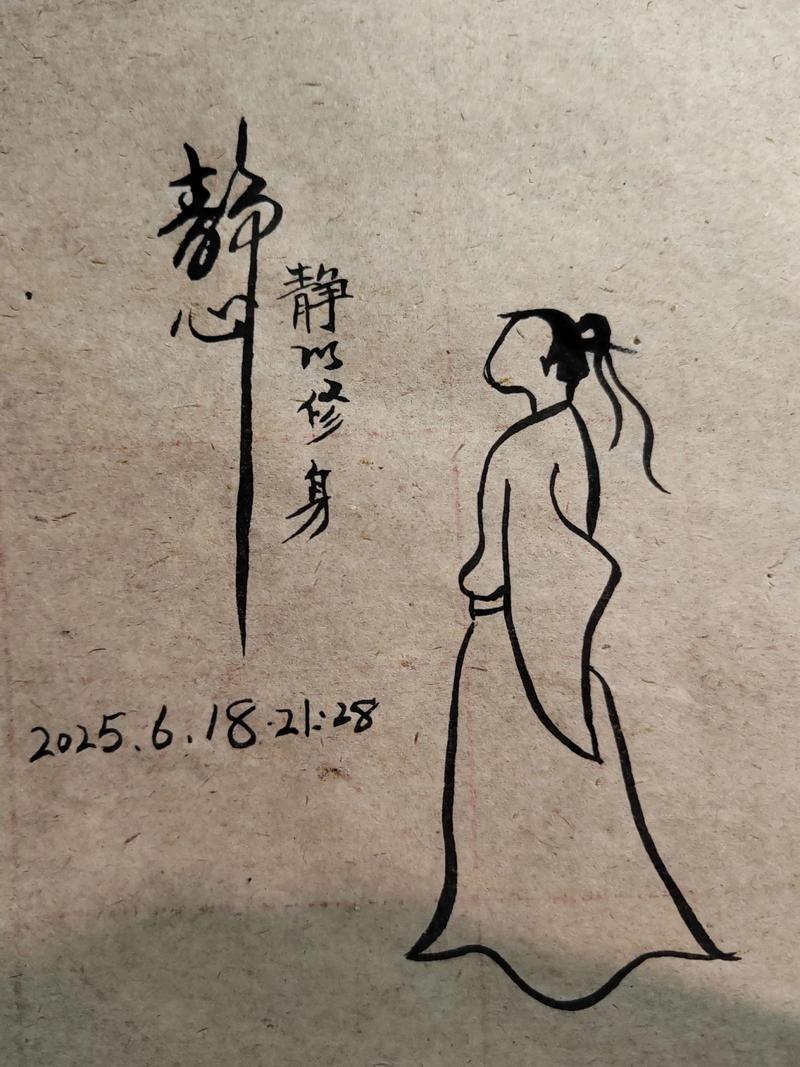 静心
静以修身
2025.6.18.21:28